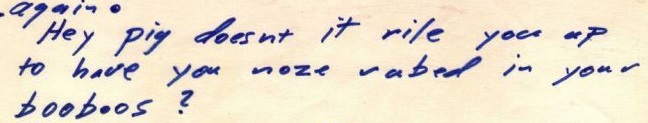 again.
Hey pig doesnt it rile you up
to have you noze rubed in your
booboos?